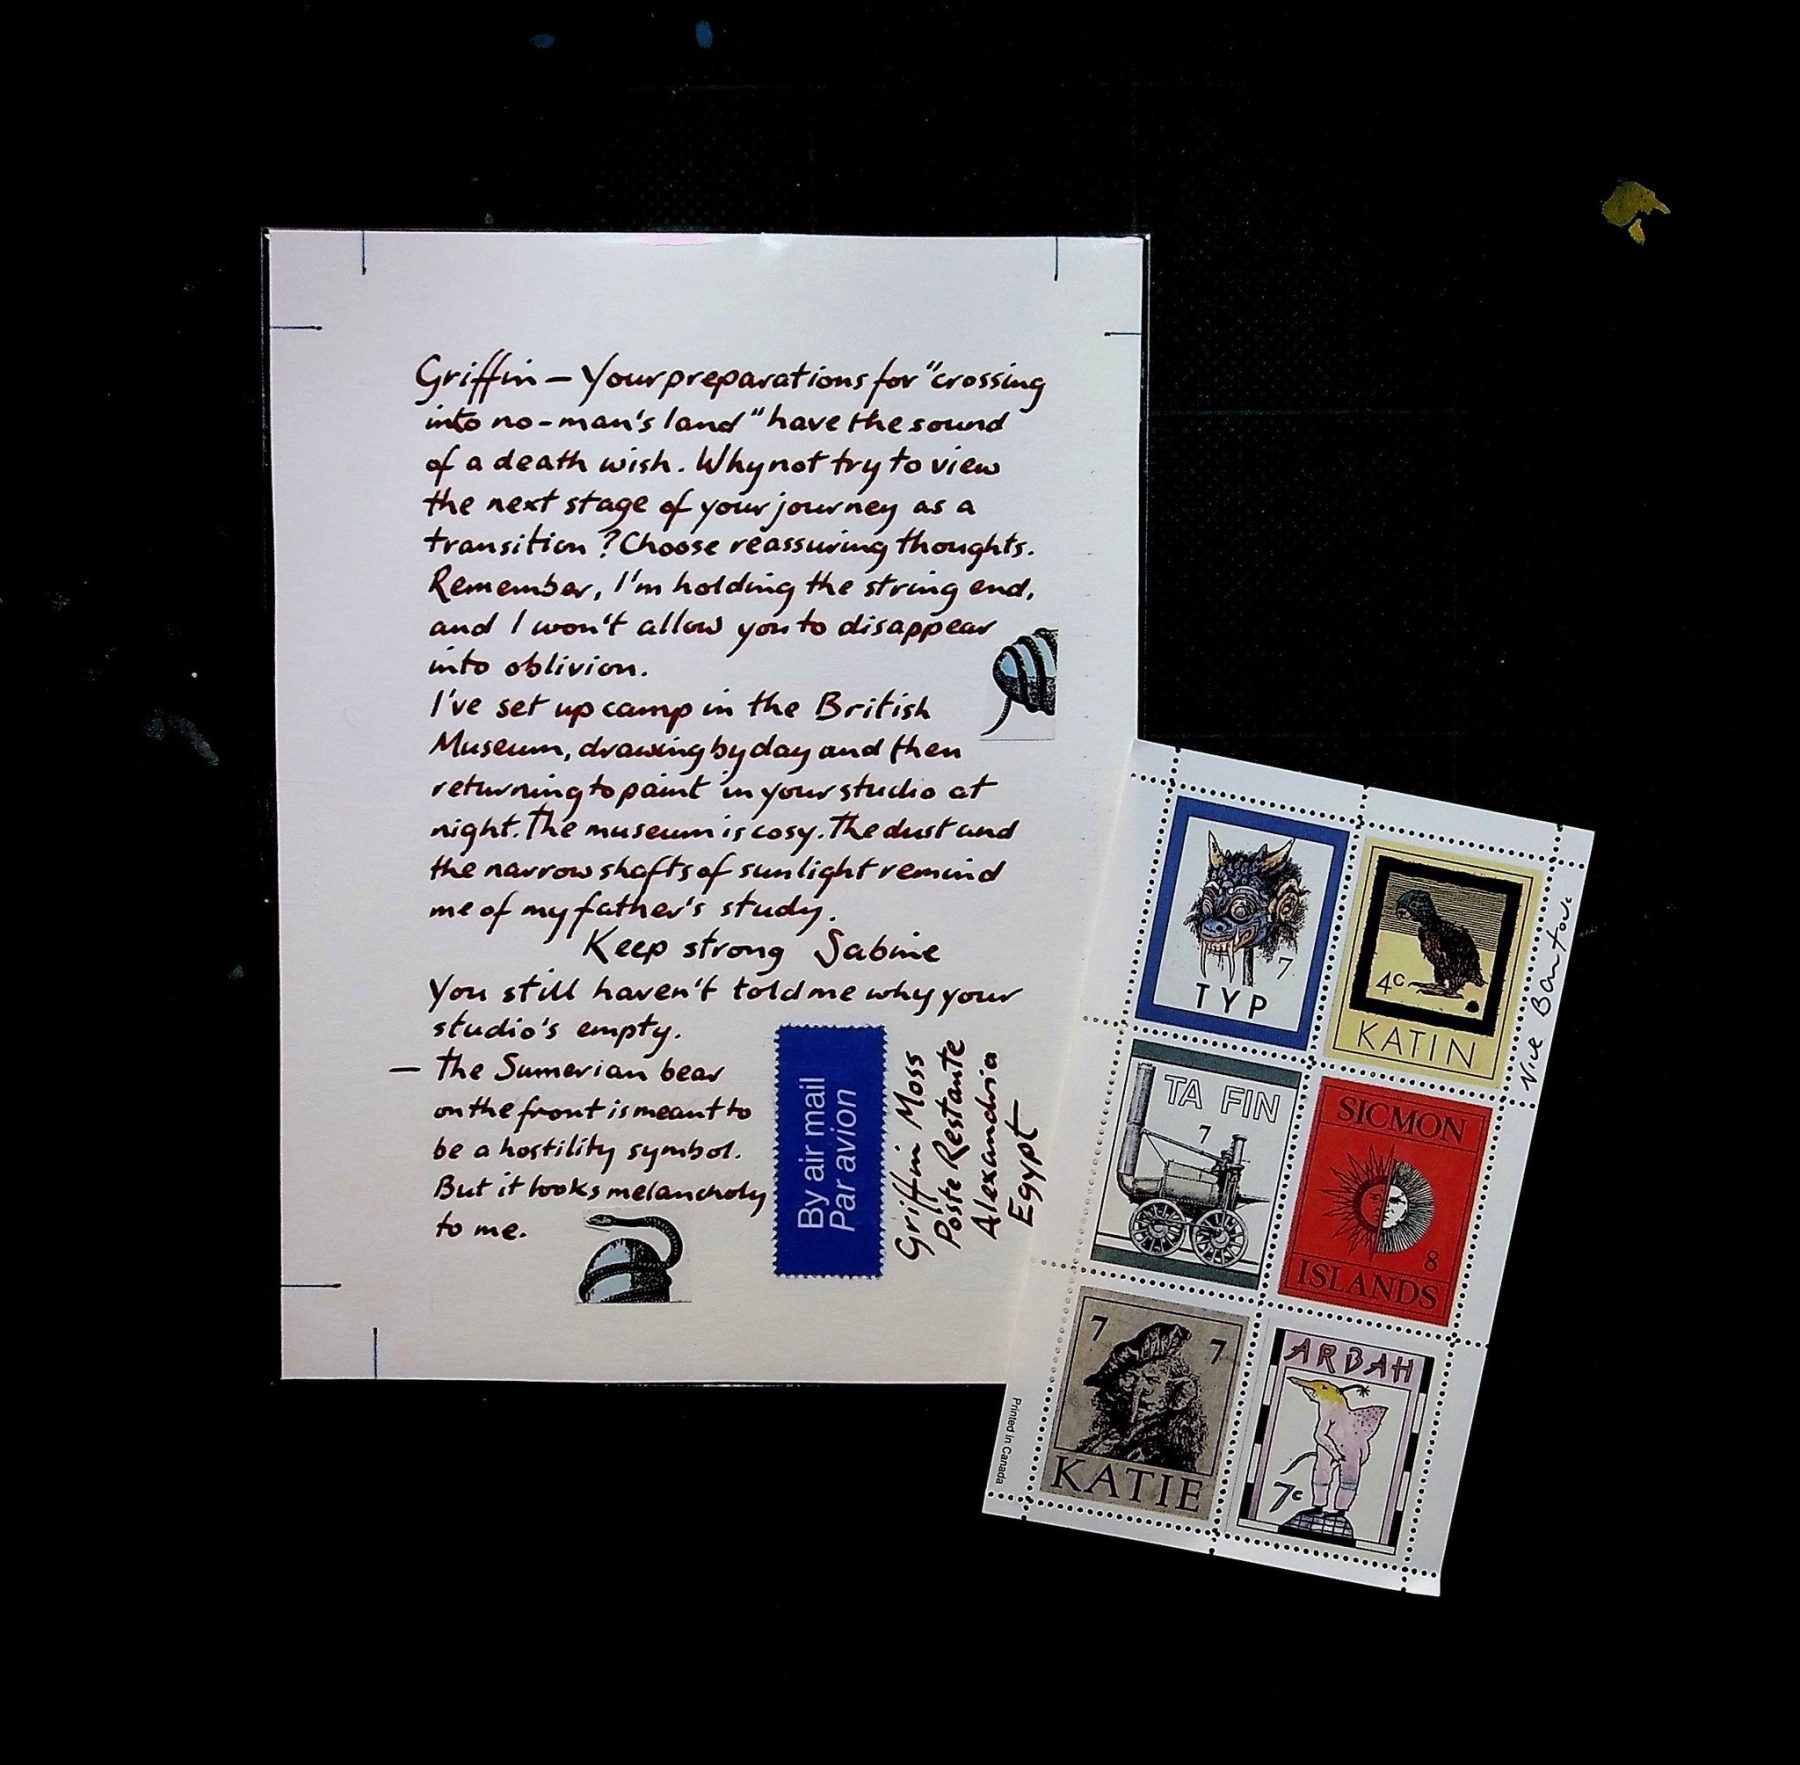 Griffin — Your preparations for "crossing
into no-man's land" have the sound
of a death wish. Why not try to view
the next stage of your journey as a
transition? Choose reassuring thoughts.
Remember, I'm holding the string end,
and I won't allow you to disappear
into oblivion.
I've set up camp in the British
Museum, drawing by day and then
returning to paint in your studio at
night. The museum is cosy. The dust and
the narrow shafts of sunlight remind
me of my father's study.
Keep strong Sabine
You still haven't told me why your
studio's empty.
— The Sumerian bear
on the front is meant to
be a hostility symbol.
But it looks melancholy
to me.
By air mail
Par avion
Griffin Moss
Poste Restante
Alexandria
Egypt
7
TYP
4c
KATIN
TA FIN
7
SICMON
8
ISLANDS
7 7
KATIE
ARBAH
7c
Nick Bantock
Printed in Canada